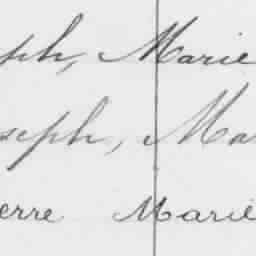 ph, Marie
seph, Ma
erre Marie